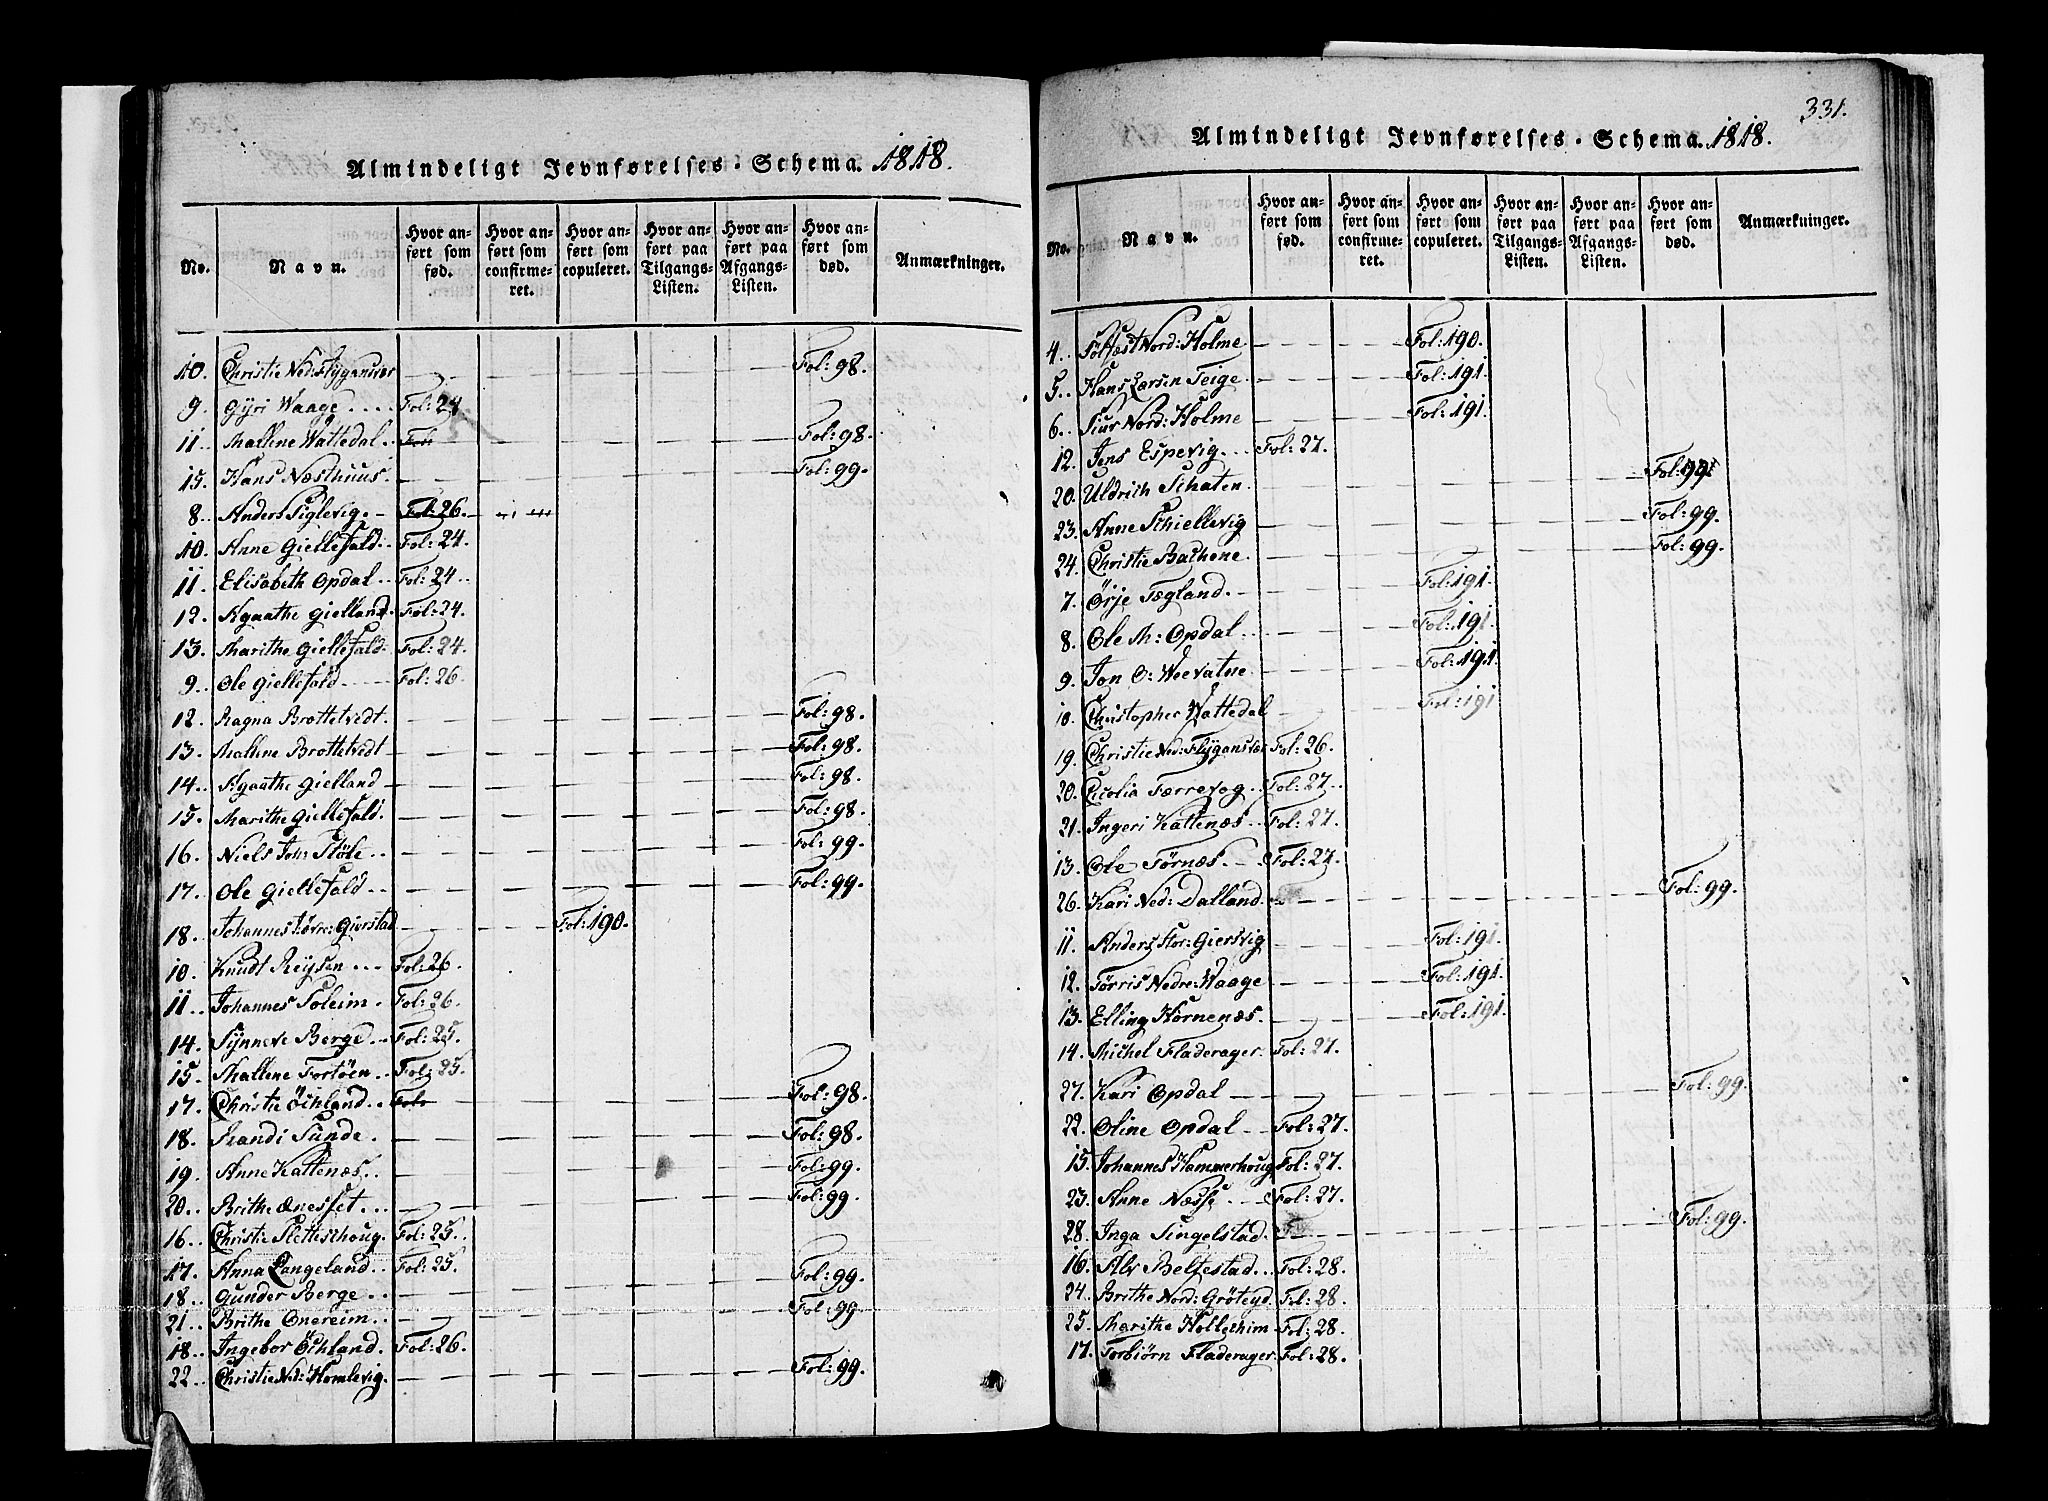 Almindeligt Jevnførelses-Schema. 1818.
No.
Navn.
Hvor an-
ført som
fød.
Hvor an-
ført som
confirme-
ret.
Hvor an-
ført som
copuleret.
Hvor an-
ført paa
Tilgangs-
Listen.
Hvor an-
ført paa
Afgangs-
Listen.
Hvor an-
ført som
død.
Anmærkninger.
10. Christie Ned: Flygansvær Fol: 98.
9. Gyri Waage Fol: 24
11. Mallene Wattedal Fol: Fol: 98.
15. Hans Næsthuus Fol: 99.
8. Anders Siglevig Fol: 26.
10. Anne Giellefald Fol: 24.
11. Elisabeth Opdal Fol: 24.
12. Agaathe Gielland Fol: 24.
13. Marithe Giellefald Fol: 24.
9. Ole Giellefald Fol: 26.
12. Ragna Brottetvedt Fol: 98.
13. Mallene Brottetvedt Fol: 98.
14. Agaathe Gielland Fol: 98.
15. Marithe Giellefald Fol: 98.
16. Niels Joh: Støle Fol: 99.
17. Ole Giellefald Fol: 99.
18. Johannes Øvre: Gierstad Fol: 190.
10. Knudt Reysen Fol: 26.
11. Johannes Soleim Fol: 26.
14. Synneve Berge Fol: 25.
15. Mallene Fortöen Fol: 25.
17. Christie Öchland Fol: Fol: 98.
18. Randi Sunde Fol: 98.
19. Anne Kattenæs Fol: 99.
20. Brithe Ænesset Fol: 99.
16. Christie Slettischoug Fol: 25.
17. Anna Langeland Fol: 25.
18. Gunder Berge Fol: 99.
21. Brithe Onereim Fol: 99.
18. Ingebor Öchland Fol: 26.
22. Christie Ned: Homlevig Fol: 99.
331.
Almindeligt Jevnførelses-Schema. 1818.
No.
Navn.
Hvor an-
ført som
fød.
Hvor an-
ført som
confirme-
ret.
Hvor an-
ført som
copuleret.
Hvor an-
ført paa
Tilgangs-
Listen.
Hvor an-
ført paa
Afgangs-
Listen.
Hvor an-
ført som
død.
Anmærkninger.
4. Sölfæst Nord: Holme Fol: 190.
5. Hans Larsen Teige Fol: 191.
6. Siur Nord: Holme Fol: 191.
12. Jens Espevig Fol: 27.
20. Uldrich Schaten Fol: 99
23. Anne Schiellevig Fol: 99.
24. Christie Bachene Fol: 99.
7. Örje Tægland Fol: 191.
8. Ole M: Opdal Fol: 191.
9. Jon O: Weevatne Fol: 191
10. Christopher Wattedal Fol: 191
19. Christie Ned: Flygansvær Fol: 26.
20. Cicilia Færrevog Fol: 27.
21. Ingeri Kattenæs Fol: 27.
13. Ole Törnæs Fol: 27.
26. Kari Ned: Dalland Fol: 99.
11. Anders Stor: Giersvig Fol: 191.
12. Törris Nedre: Waage Fol: 191.
13. Elling Hornenæs Fol: 191.
14. Michel Fladerager Fol: 27.
27. Kari Opdal Fol: 99.
22. Oline Opdal Fol: 27.
15. Johannes Hammerhoug Fol: 27.
23. Anne Næsse Fol: 27.
28. Inga Singelstad Fol: 99.
16. Alv Beltestad Fol: 28.
24. Brithe Nord: Gröteyd Fol: 28.
25. Marithe Hollechim Fol: 28.
17. Torbiörn Fladerager Fol: 28.